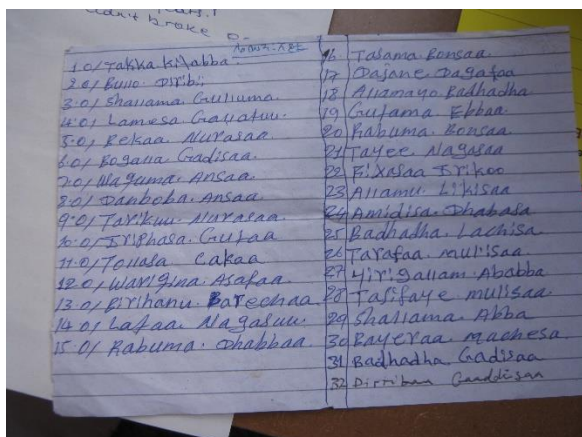 don't broke o-
1.0/ Takka kitabba
2.0/ Bulo Diribii
3.0/ Shallama Guluma
4.0/ Lamesa Gallatuu
5.0/ Bekaa Nurasaa
6.0/ Bogalla Gadisaa
7.0/ Naguma Ansaa
8.0/ Danboba Ansaa
9.0/ Tarikuu Narasaa
10.0/ Iriphasa Gutaa
11.0/ Tollasa Cakaa
12.0/ Warigina Asafaa
13.0/ Birihanu Barechaa
14.0/ Lataa Nagasuu
15.0/ Rabuma Dhabbaa
16 Tasama Bonsaa
17 Dajane Dagafaa
18 Allamayo Badhadha
19 Gutama Ebbaa
20 Rabuma Bonsaa
21 Tayee Nagasaa
22 Bixasaa Irikoo
23 Allamu Likisaa
24 Amidisa Dhabasa
25 Badhadha Lachisa
26 Tarafaa mulisaa
27 Yirigallam Ababba
28 Tasifaye mulisaa
29 Shallama Abba
30 Bayeraa machesa
31 Badhadha Gadisaa
32 Dirribaa Gaaddisaa